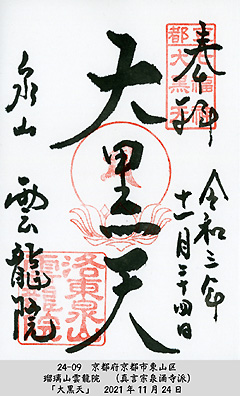 奉拝
令和三年
十一月二十四日
大黒天
泉山
雲龍院
洛東泉山
雲龍院
24-09 京都府京都市東山区
瑠璃山雲龍院 (真言宗泉涌寺派)
「大黒天」 2021年11月24日